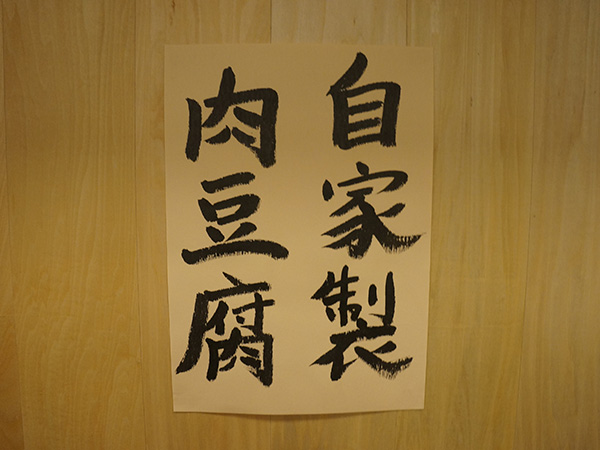 自家製
肉豆腐